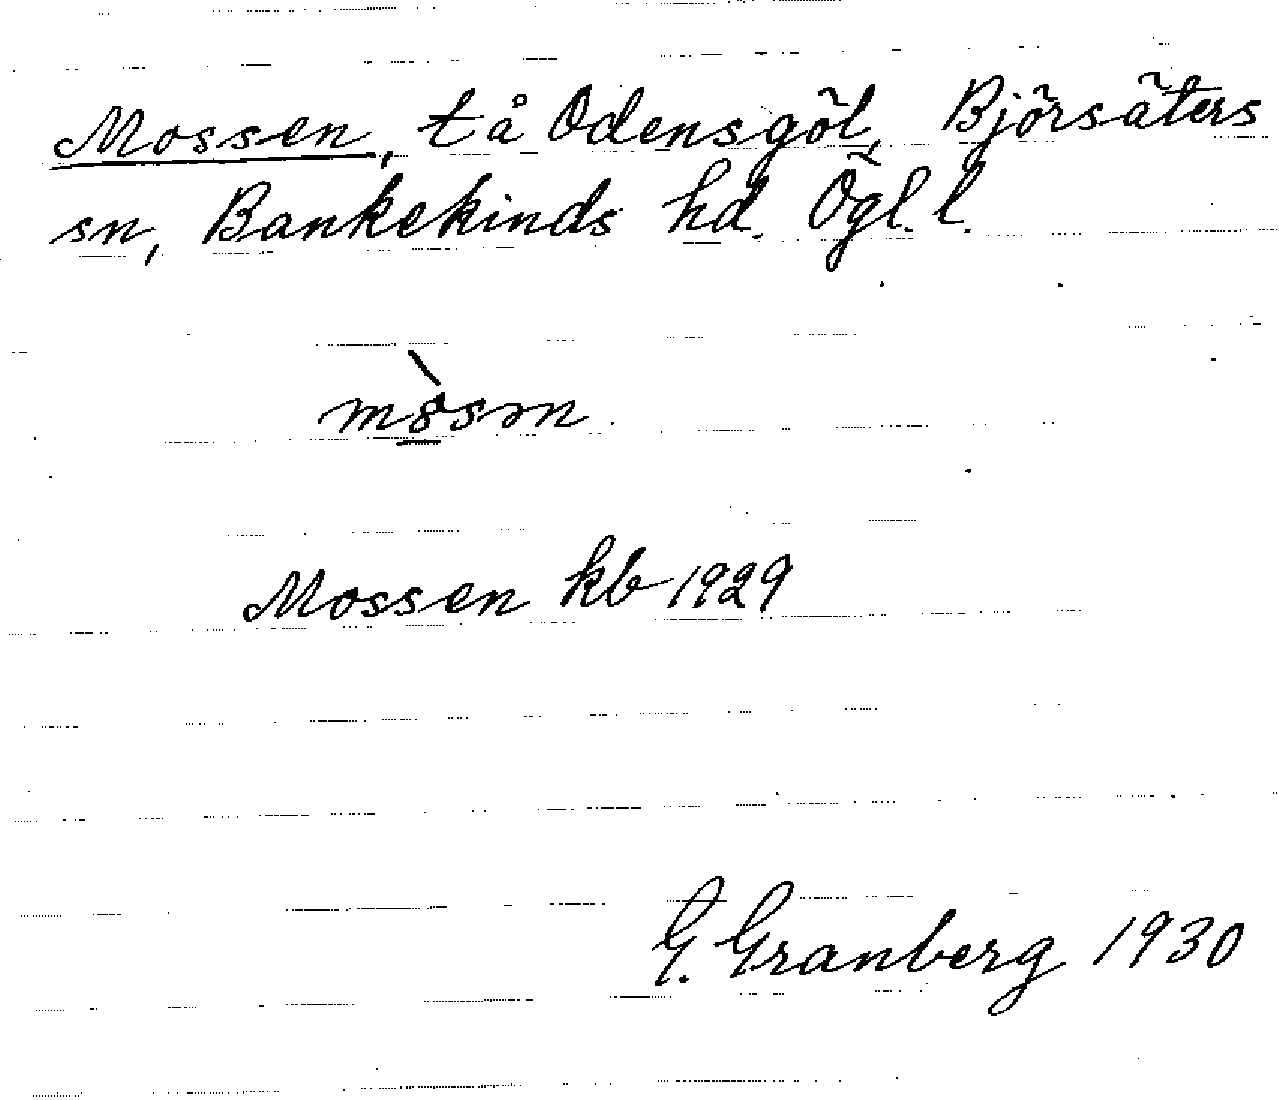 Mossen, t å Odensgöl, Björsäters
sn, Bankekinds hd. Ögl. l.
Mossen kb 1929
G. Granberg 1930